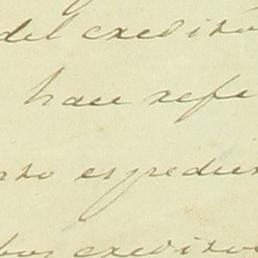 del credito
hace refe
nto espedien
bos creditos